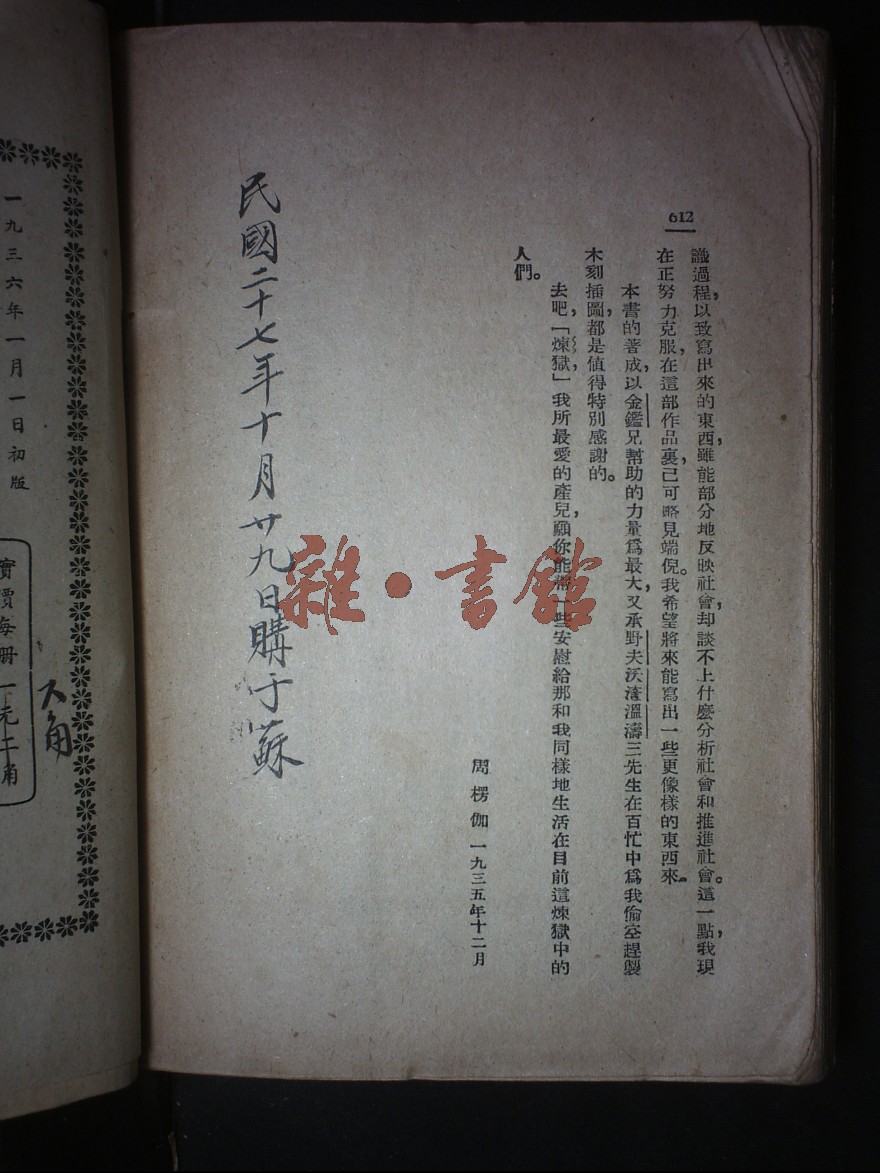 612
識過程，以致寫出來的東西，雖能部分地反映社會，却談不上什麼分析社會和推進社會。這一點，我現
在正努力克服，在這部作品裏，己可略見端倪。我希望將來能寫出一些更像樣的東西來。
本書的著成，以金鑑兄幫助的力量爲最大，又承野夫沃渣溫濤三先生在百忙中爲我偷空趕製
木刻插圖，都是値得特別感謝的。
去吧，「煉獄」，我所最愛的產兒，願你能帶一些安慰給那和我同樣地生活在目前這煉獄中的
人們。
周楞伽 一九三五年十二月
民國二十七年十月廿九日購于蘇
雜·書館
一九三六年一月一日初版
實價每册一元二角
大角